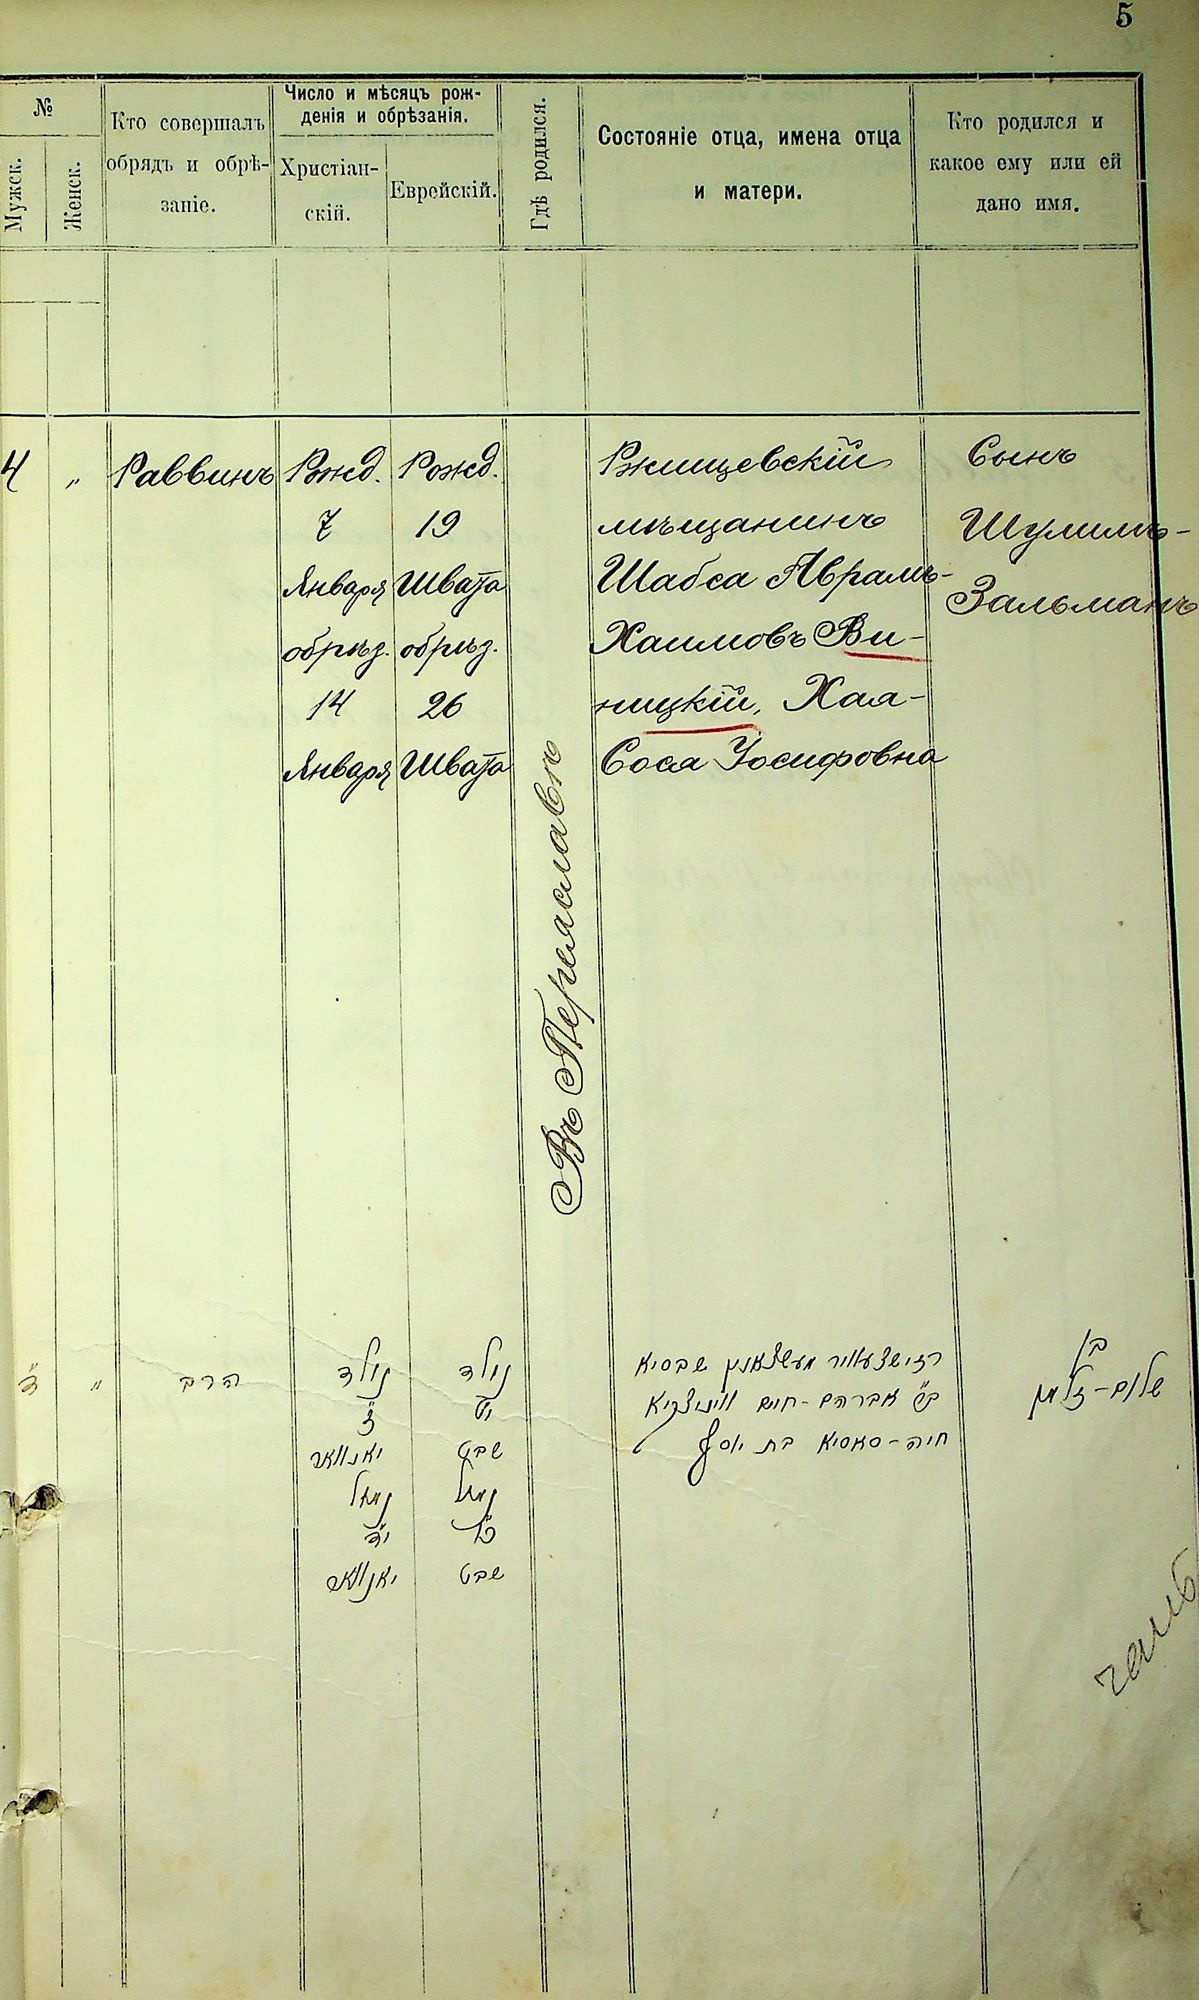 5
№
Мужск.
Женск.
Кто совершалъ
обрядъ и обрѣ-
заніе.
Число и мѣсяцъ рож-
денія и обрѣзанія.
Христіан-
скій.
Еврейскій.
Гдѣ родился.
Состояніе отца, имена отца
и матери.
Кто родился и
какое ему или ей
дано имя.
4
„
Раввинъ
Рожд.
7
Января
обрѣз.
14
Января
Рожд.
19
Швата
обрѣз.
26
Швата
Въ Переяславѣ
Ржищевскій
мѣщанинъ
Шабса Аврамъ-
Хаимовъ Ви-
ницкій, Хая-
Сося Іосифовна
Сынъ
Шулимъ-
Зальманъ
ד
„
הרב
נולד
ז
יאנואר
נימול
י״ד
יאנואר
נולד
י״ט
שבט
נימול
כ״ו
שבט
שבסיא
אברהם-חיים וויניצקיא
חיה-סאסיא בת יוסף
בן
שלום-זלמן